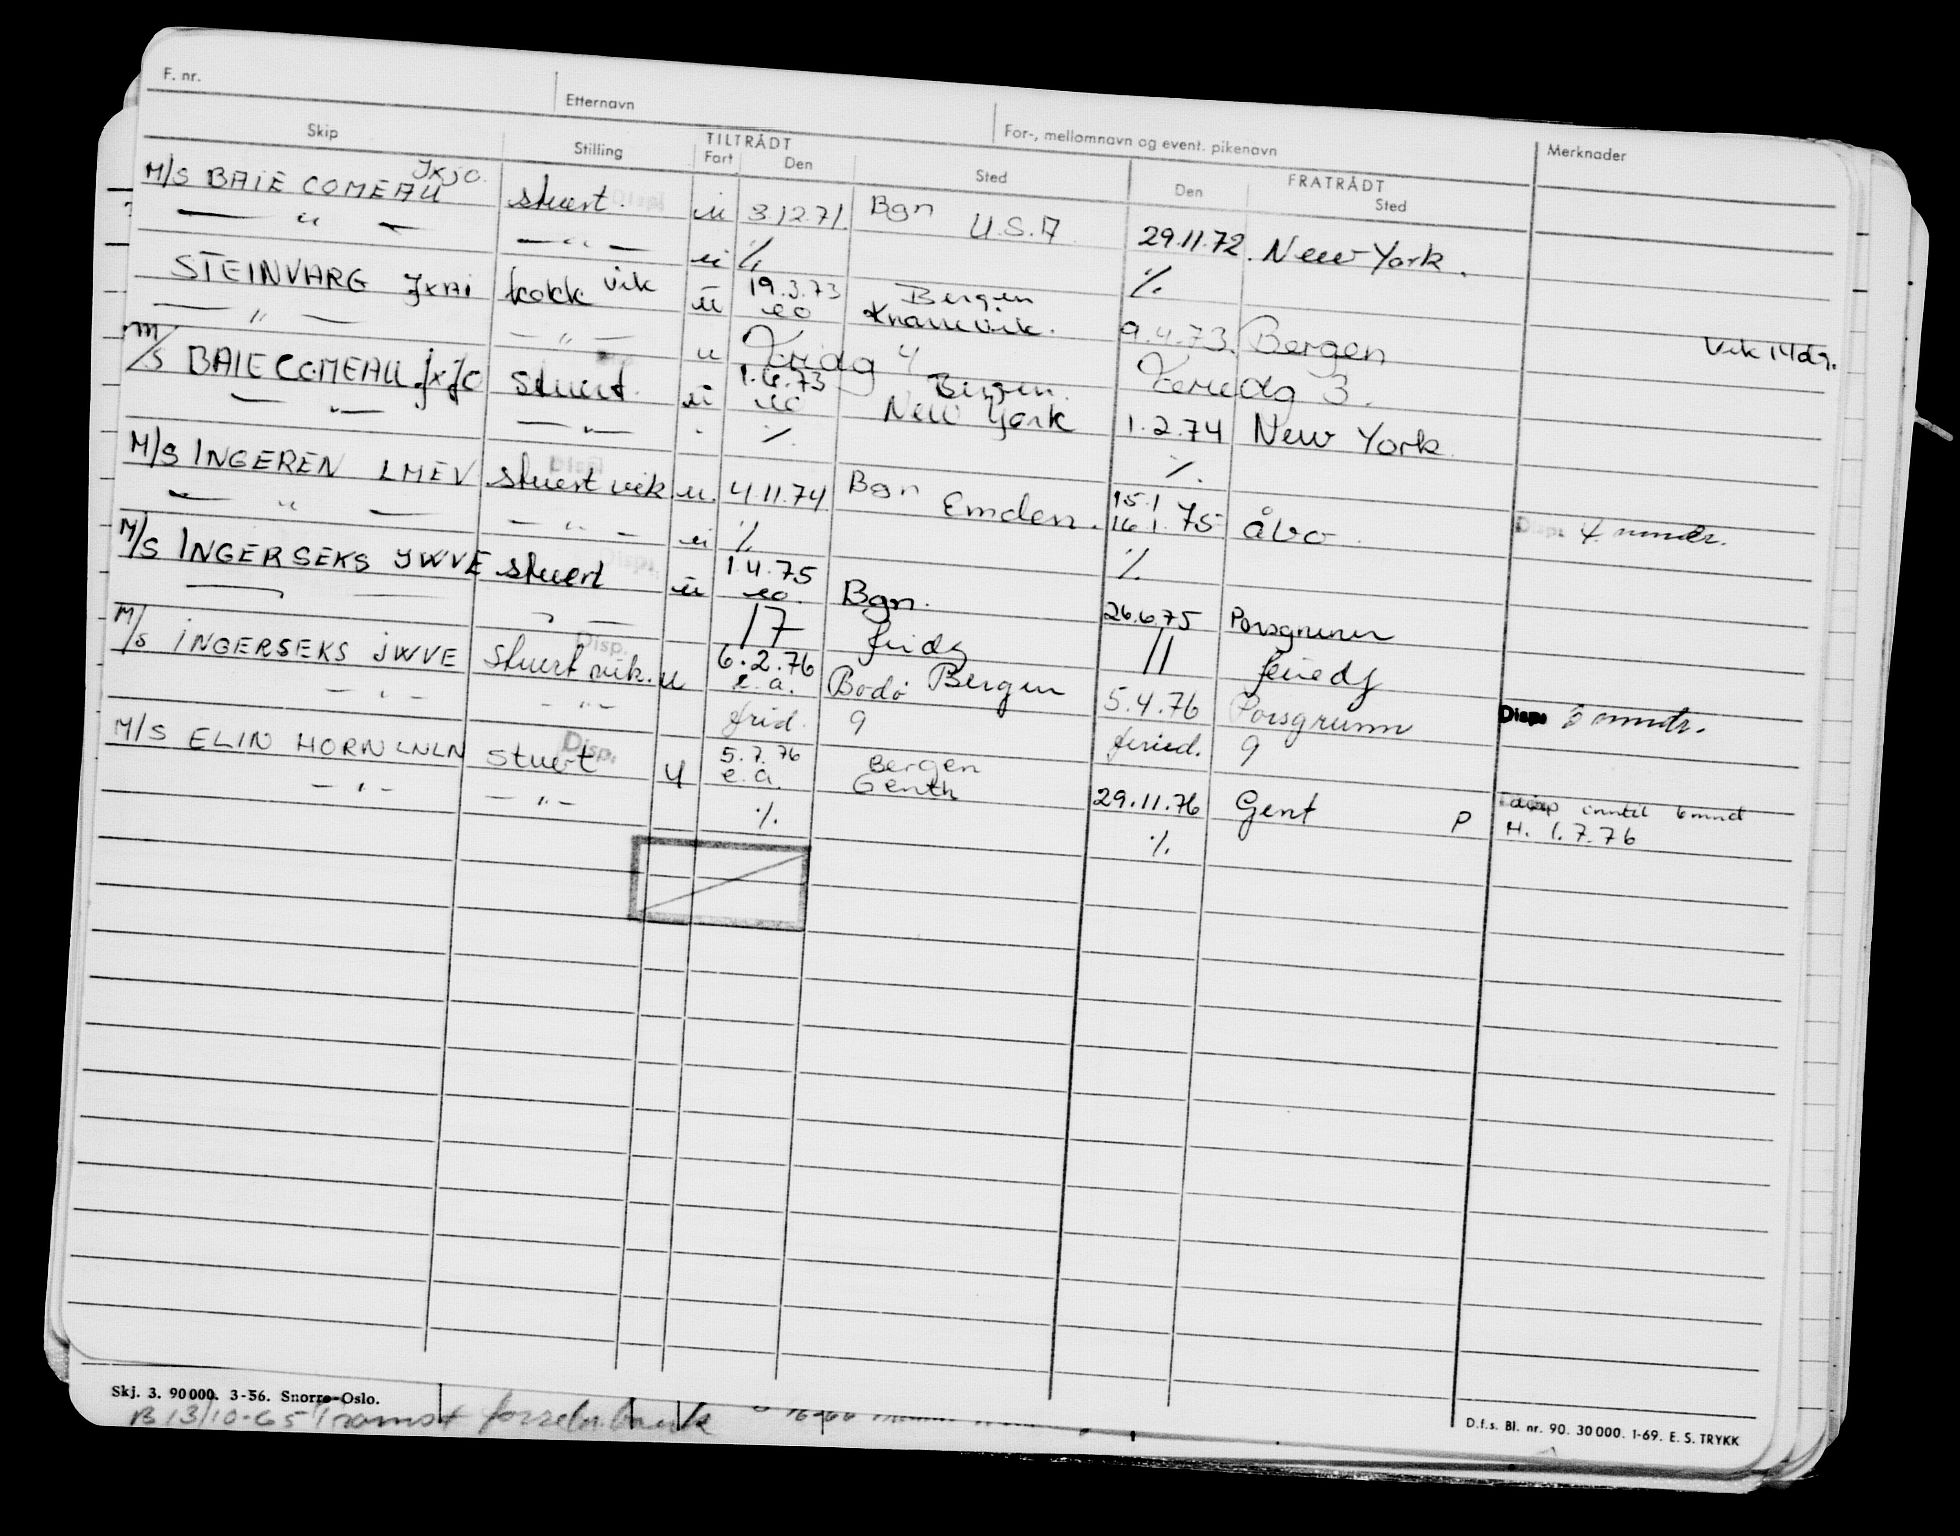 F. nr.
Etternavn
For-, mellomnavn og event. pikenavn
Merknader
Skip
Stilling
TILTRÅDT
Fart
Den
Sted
FRATRÅDT
Den
Sted
M/S BAIE COMEAU Jxjo. stuert. u 3.12.71. Bgn U.S.A. 29.11.72. New York.
— " — — " — u ·/. ·/.
STEINVARG kokk vik u 19.3.73 eo Bergen 9.4.73. Bergen Vik 14 dg.
— " — — " — u Feridg 4 Feriedg 3.
M/S BAIE COMEAU JxJO Stuert. u 1.6.73 eo Bergen. New York 1.2.74 New York
— " — — " — ·/. ·/.
M/S INGEREN LMEV stuert vik u. 4.11.74 Bgn Emden. 15.1 16.1.75 åbo. Disp. 4 mndr.
— " — — " — u ·/. ·/.
M/S INGERSEKS JWVE stuert Disp. u 1.4.75 eo. Bgn. 26.6.75 Porsgrunn
17 feridg 11 feriedg
M/S INGERSEKS JWVE Stuert vik. Disp. u 6.2.76 e.a. Bodø Bergen 5.4.76 Porsgrunn Disp. 3 mndr.
— " — — " — frid. 9 feried. 9
M/S ELIN HORN LNLN Stuert Disp. u 5.7.76 e.a. Bergen Genth 29.11.76 Gent P disp inntil 6 mnd
— " — — " — ·/. ·/. H. 1.7.76
Skj. 3. 90000. 3-56. Snorre-Oslo.
B 13/10-65
D.f.s. Bl. nr. 90. 30000. 1-69. E. S. TRYKK